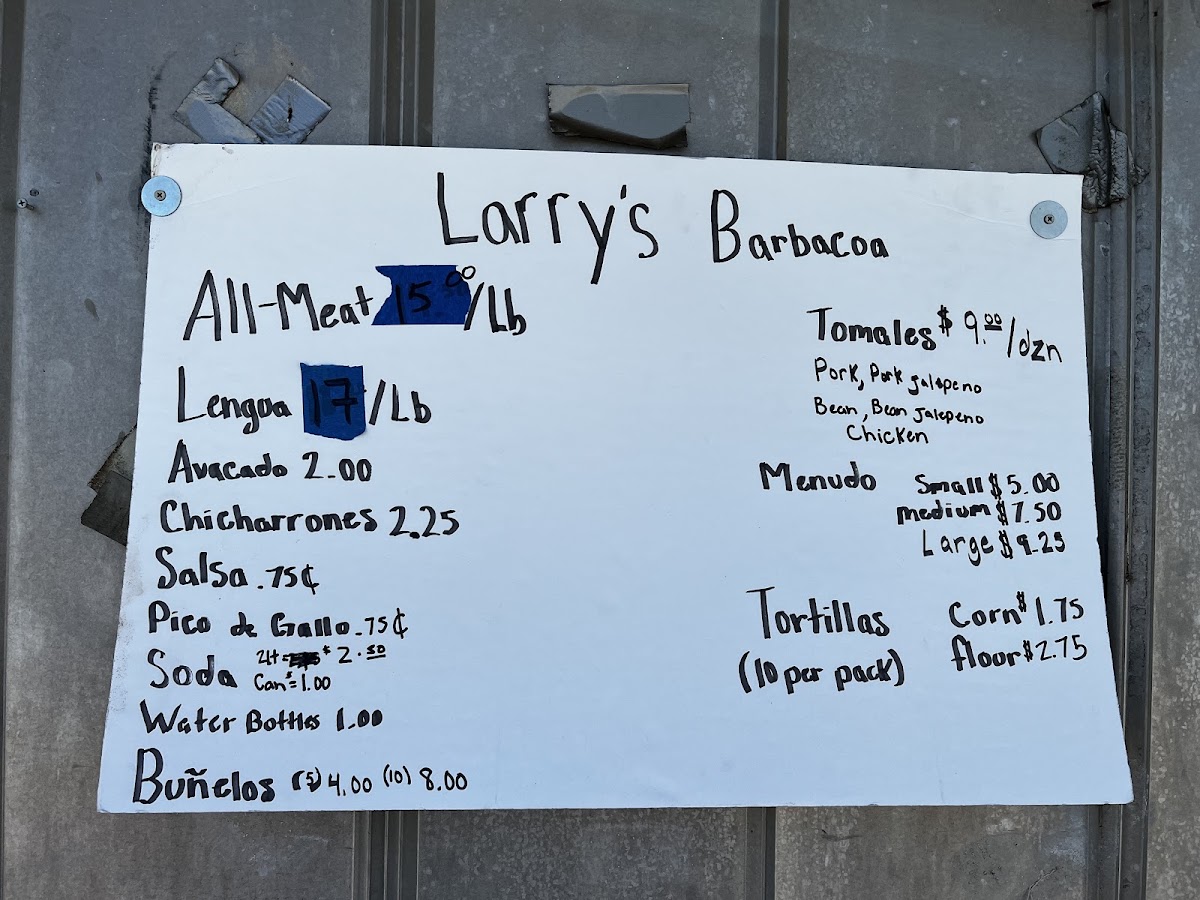 Larry's Barbacoa
All-Meat 15 00/Lb
Lengua 17/Lb
Avacado 2.00
Chicharrones 2.25
Salsa .75¢
Pico de Gallo .75¢
Soda 2Lt = $2.50
Can = $1.00
Water Bottles 1.00
Buñelos (5) 4.00 (10) 8.00
Tomales $9.00/dzn
Pork, Pork jalapeno
Bean, Bean Jalepeno
Chicken
Menudo Small $5.00
medium $7.50
Large $9.25
Tortillas Corn $1.75
(10 per pack) flour $2.75